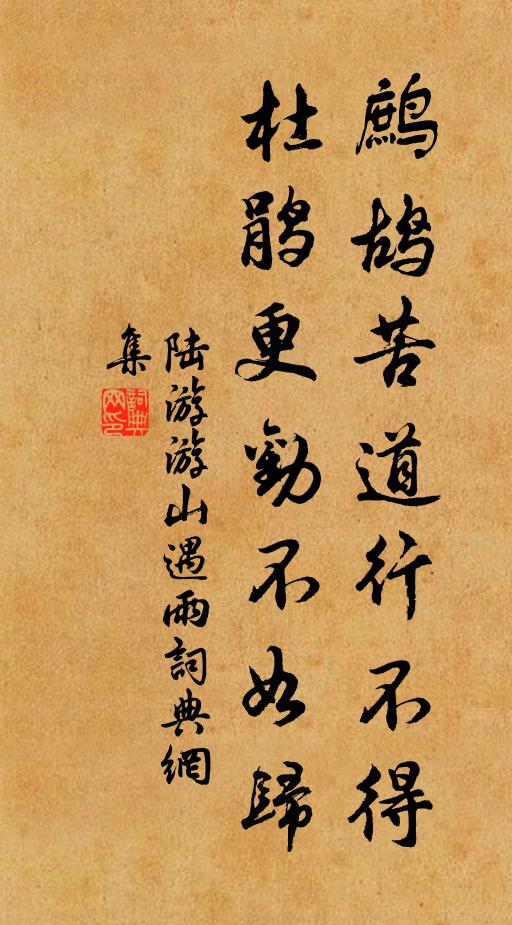 鷓鴣苦道行不得
杜鹃更勸不如歸
陆游游山遇雨詞典網
集
詞典
网印